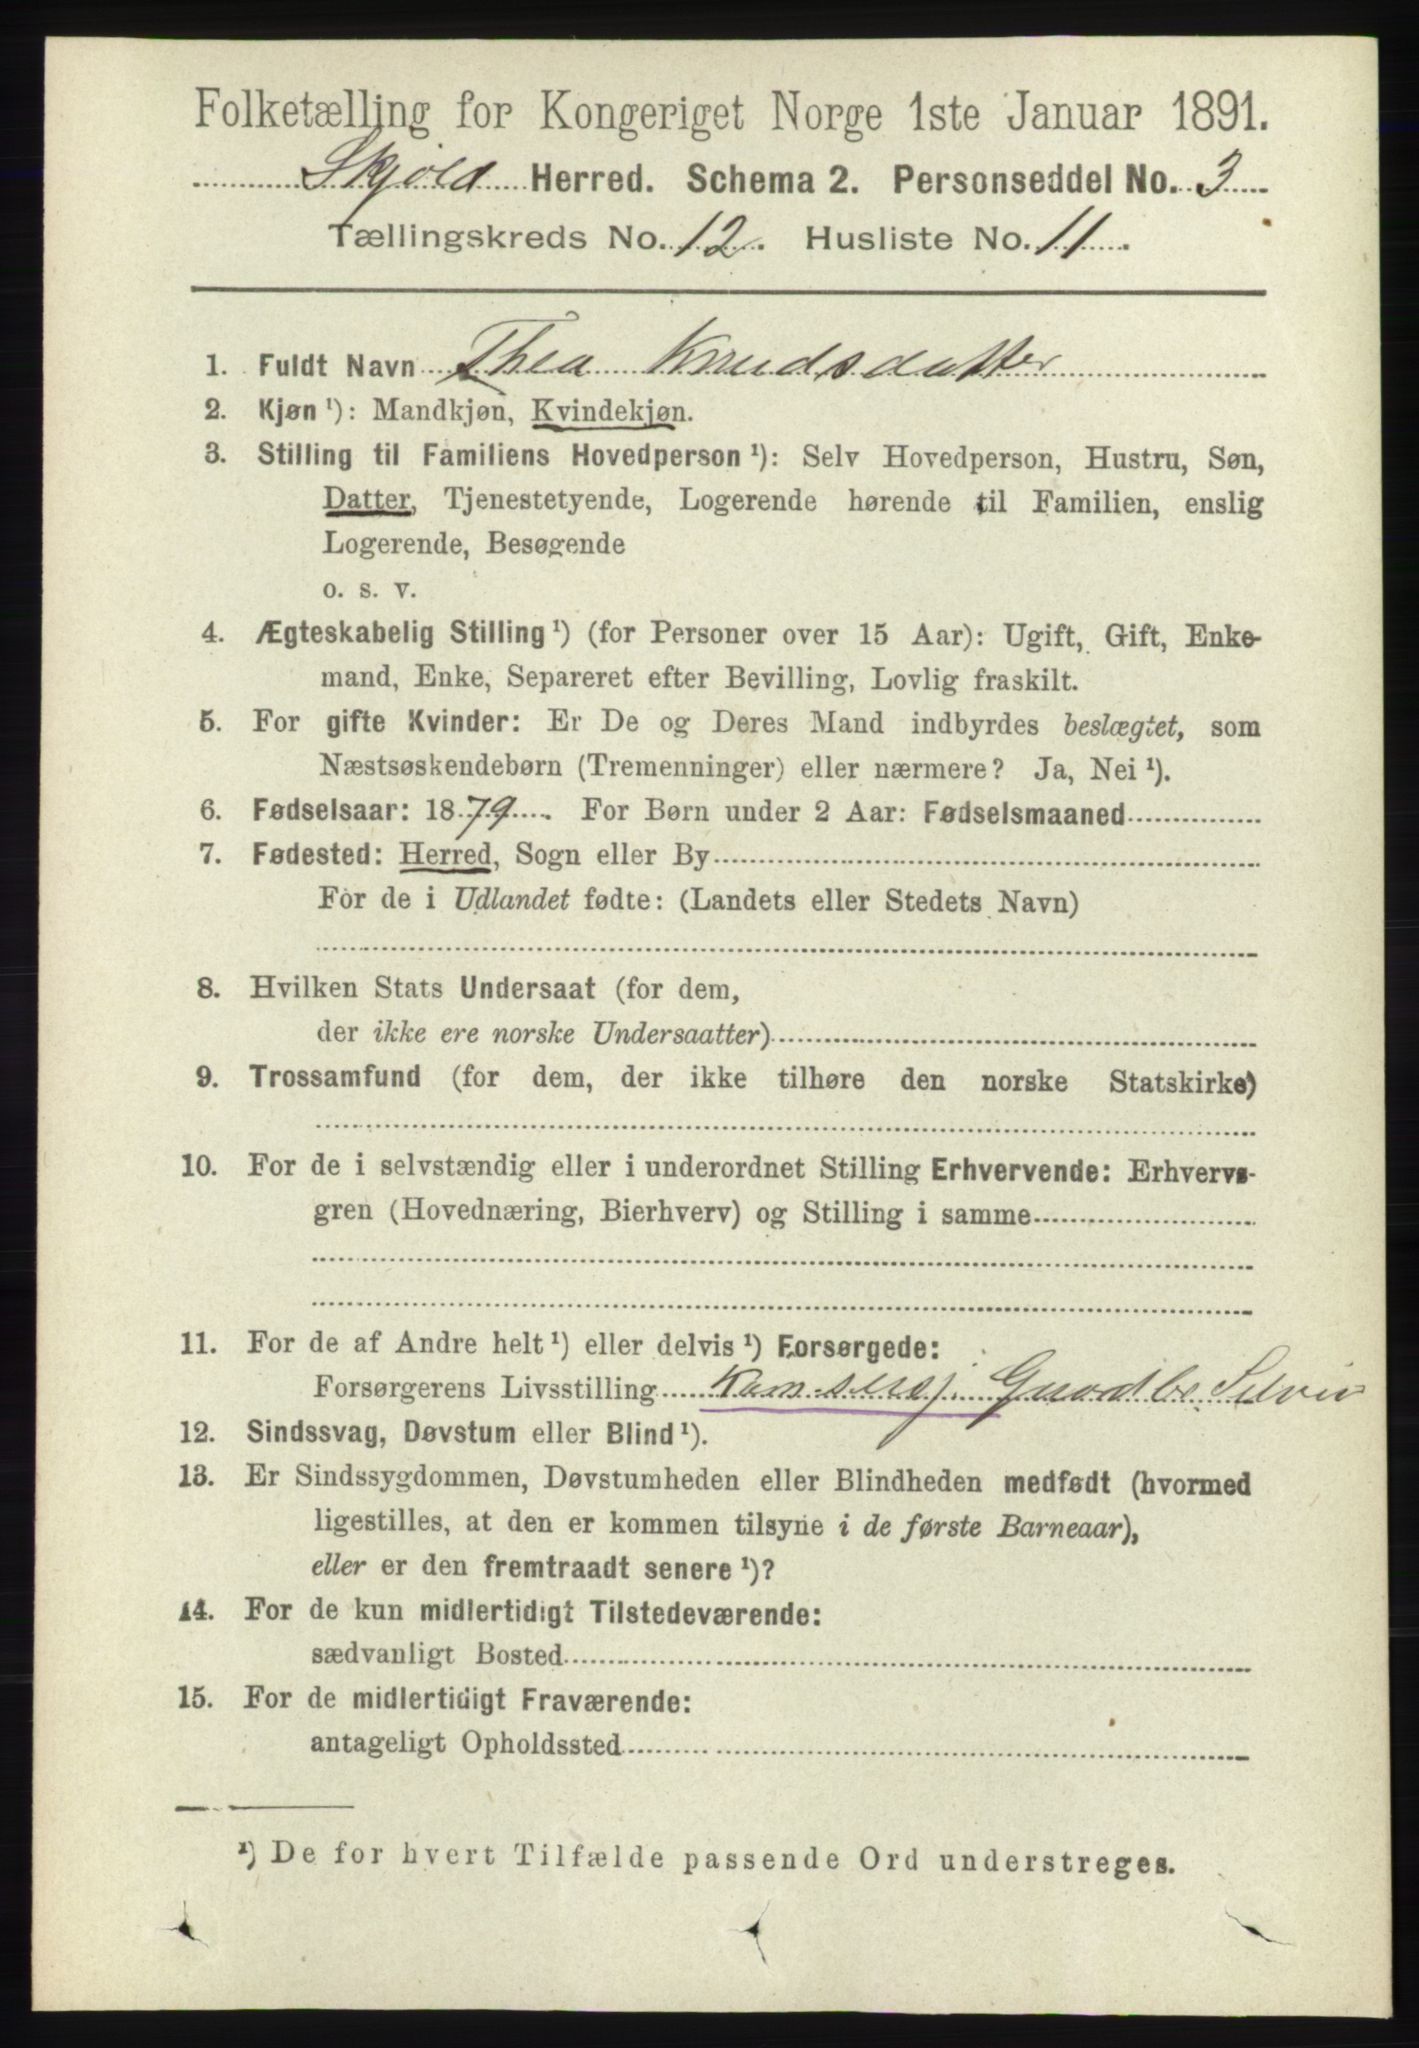 Folketælling for Kongeriget Norge 1ste Januar 1891.
Skjold Herred. Schema 2. Personseddel No. 3
Tællingskreds No. 12. Husliste No. 11.
1. Fuldt Navn Thea Knudsdatter
2. Kjøn ¹): Mandkjøn, Kvindekjøn.
3. Stilling til Familiens Hovedperson ¹): Selv Hovedperson, Hustru, Søn,
Datter, Tjenestetyende, Logerende hørende til Familien, enslig
Logerende, Besøgende
o. s. v.
4. Ægteskabelig Stilling ¹) (for Personer over 15 Aar): Ugift, Gift, Enke-
mand, Enke, Separeret efter Bevilling, Lovlig fraskilt.
5. For gifte Kvinder: Er De og Deres Mand indbyrdes beslægtet, som
Næstsøskendebørn (Tremenninger) eller nærmere? Ja, Nei ¹).
6. Fødselsaar: 1879. For Børn under 2 Aar: Fødselsmaaned
7. Fødested: Herred, Sogn eller By
For de i Udlandet fødte: (Landets eller Stedets Navn)
8. Hvilken Stats Undersaat (for dem,
der ikke ere norske Undersaatter)
9. Trossamfund (for dem, der ikke tilhøre den norske Statskirke)
10. For de i selvstændig eller i underordnet Stilling Erhvervende: Erhvervs-
gren (Hovednæring, Bierhverv) og Stilling i samme
11. For de af Andre helt ¹) eller delvis ¹) Forsørgede:
Forsørgerens Livsstilling
12. Sindssvag, Døvstum eller Blind ¹).
13. Er Sindssygdommen, Døvstumheden eller Blindheden medfødt (hvormed
ligestilles, at den er kommen tilsyne i de første Barneaar),
eller er den fremtraadt senere ¹)?
14. For de kun midlertidigt Tilstedeværende:
sædvanligt Bosted
15. For de midlertidigt Fraværende:
antageligt Opholdssted
¹) De for hvert Tilfælde passende Ord understreges.